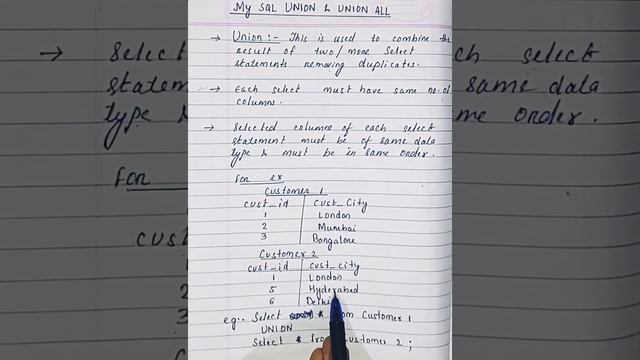 My SQL UNION & UNION ALL
→ Union :- This is used to combine the
result of two/more Select
statements removing duplicates.
→ Each select must have same no. of
columns.
→ Selected columns of each select
statement must be of same data
type & must be in same order.
For ex
Customer 1
cust_id Cust_City
1 London
2 Mumbai
3 Bangalore
Customer 2
cust_id cust_city
1 London
5 Hyderabad
6 Delhi
eg:- Select * from Customer 1
UNION
Select * from Customer 2 ;